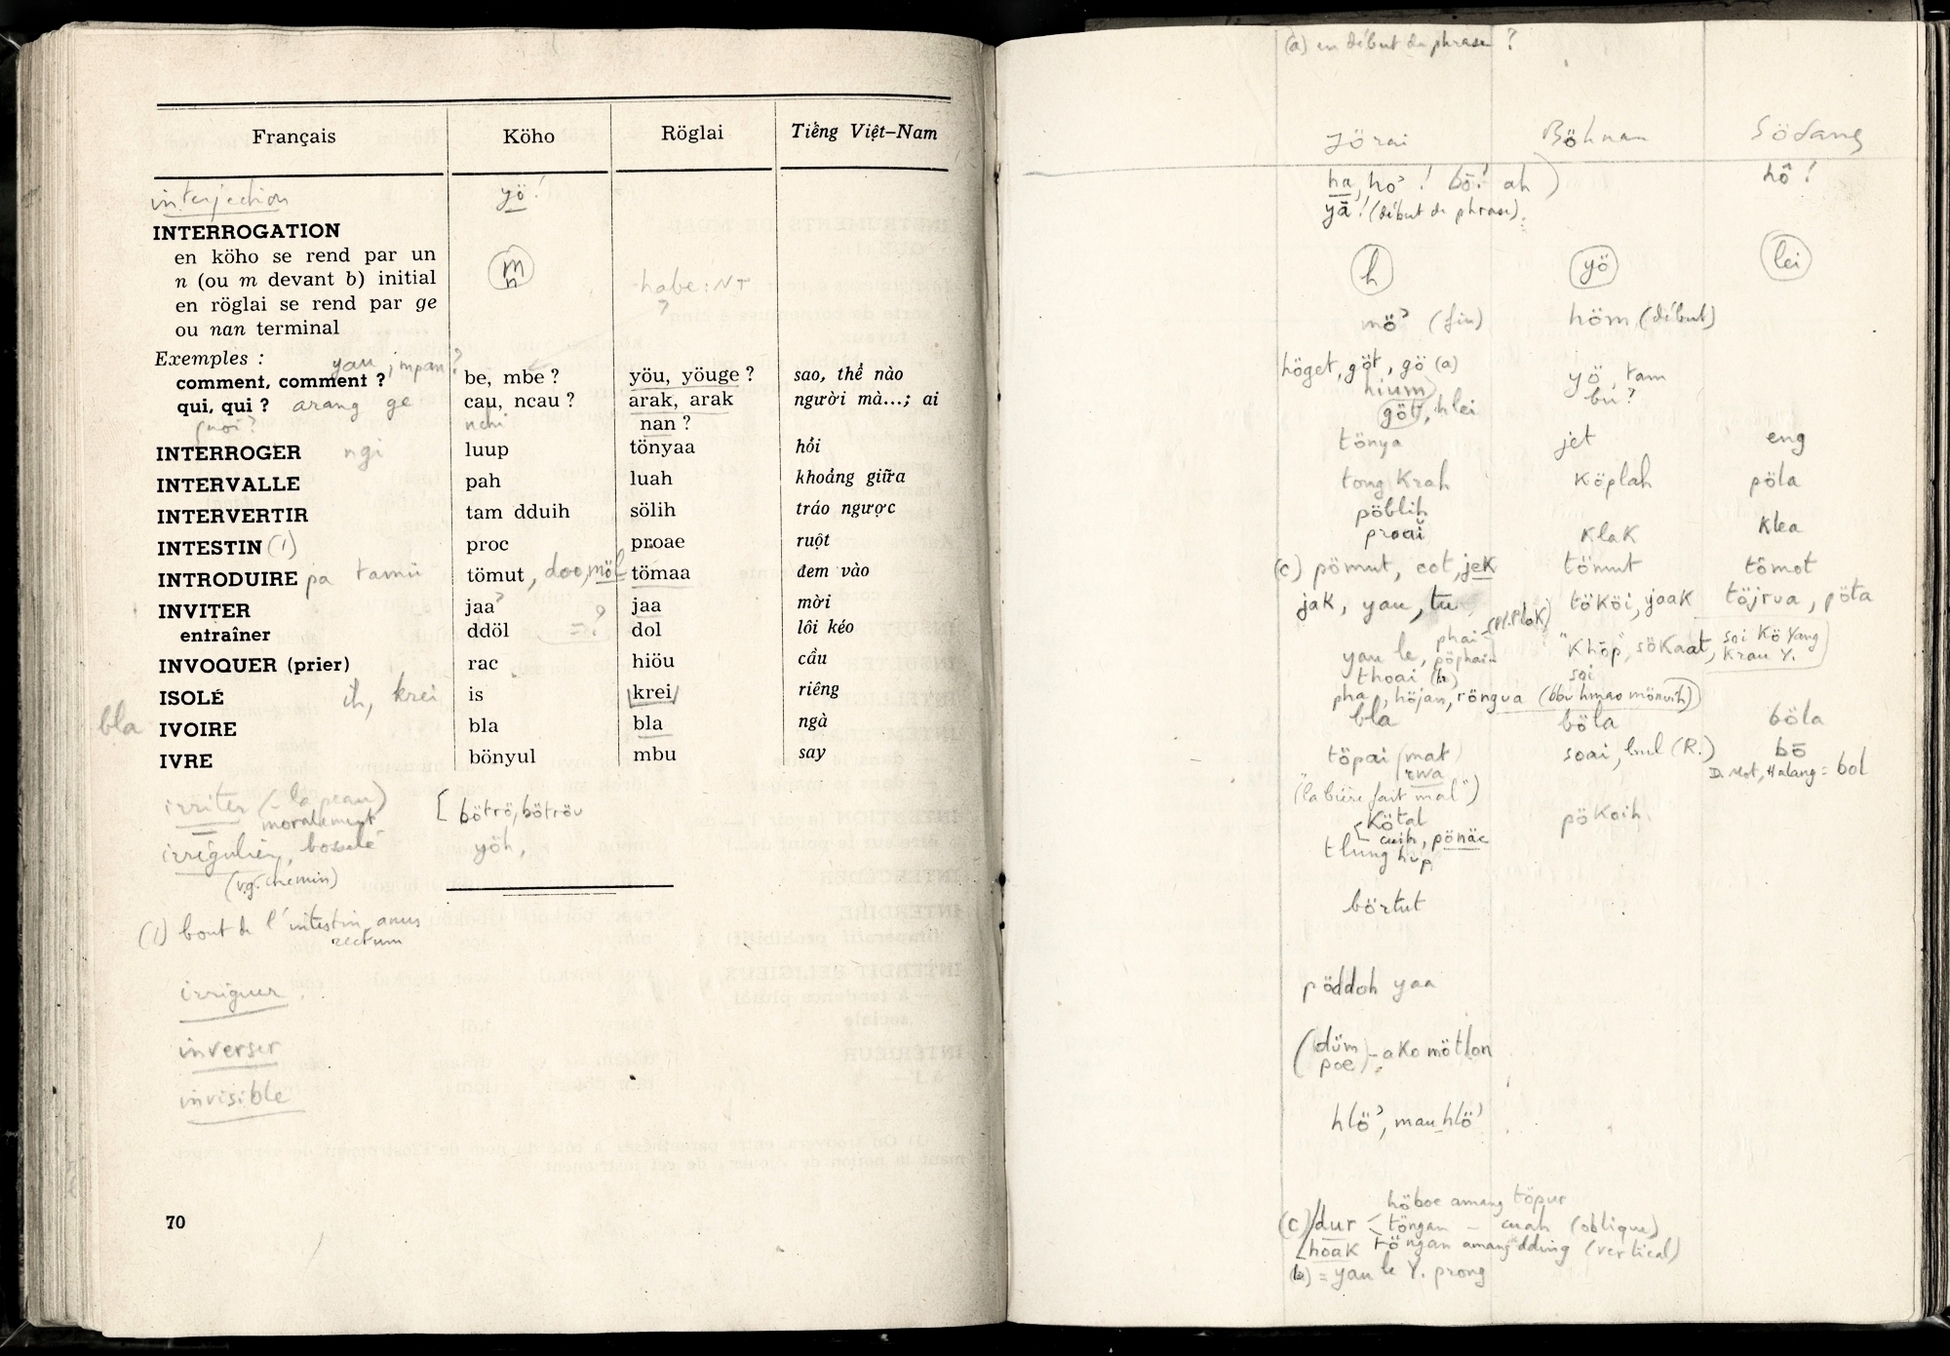 Français	Köho	Röglai	Tiếng Việt–Nam
interjection	yö !
INTERROGATION
en köho se rend par un
n (ou m devant b) initial	m n	habe : NT ?
en röglai se rend par ge
ou nan terminal
Exemples :
yau
comment, comment ?	be, mbe ?	yöu, yöuge ?	sao, thể nào
qui, qui ? arang ge	cau, ncau ?	arak, arak	người mà...; ai
quoi ?	nchi	nan ?
INTERROGER ngi	luup	tönyaa	hỏi
INTERVALLE	pah	luah	khoảng giữa
INTERVERTIR	tam dduih	sölih	tráo ngược
INTESTIN (1)	proc	proae	ruột
INTRODUIRE pa tamü	tömut, doo, möl	tömaa	đem vào
INVITER	jaa	jaa	mời
entraîner	ddöl = ?	dol	lôi kéo
INVOQUER (prier)	rac	hiöu	cầu
ISOLÉ ih, krei	is	krei	riêng
bla IVOIRE	bla	bla	ngà
IVRE	bönyul	mbu	say
irriter (– la peau)	[ bötrö, bötröu
moralement
irrégulier, bosselé	yöh,
(v.g. chemin)
(1) bout de l'intestin, anus
rectum
irriguer
inverser
invisible
70
(a) en début de phrase ?
Jörai	Böhnan	Södang
ha, ho' ! bö ! ah )	hô !
yă ! (début de phrase).
h	yö	lei
mö' (fin)	höm (début)
höget, göt, gö (a)	yö, tam
hium	bu ?
göt, hlei
tönya	jet	eng
tong Krah	Köplah	pöla
pöblih
proai	klak	klea
(c) pömut, cot, jek	tömut	tômot
jak, yau, tu	tököi, jaak	töjrua, pöta
phai (Pl. Plok)
yau le, pöphai	"Khöp", sökaat,	soi Kö Yang
krau Y.
thoai (b)	soi
pha, höjan, röngua (bbu hmao mönuih)
bla	böla	böla
töpai (mat	soai, bul (R.)	bō
rwa	D. Mot, Halang = bol
("la bière fait mal")
Kötal	pökoih
cuih, pönăc
tlung hup
börtut
pöddoh yaa
(düm
poe) – ako mötlon
hlö', mau hlö'
höboe amang töpur
(c) dur < töngan – cuah (oblique)
hoak töngan amang dding (vertical)
(b) = yau le Y. prong